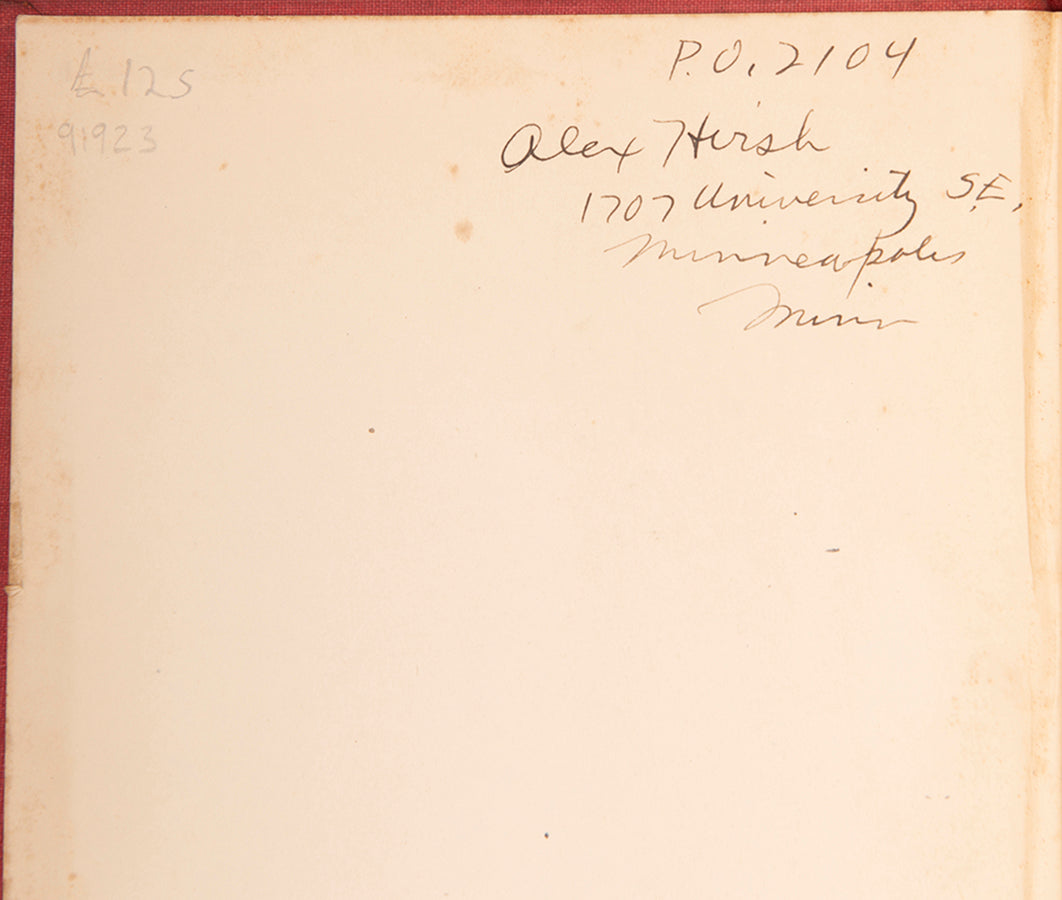 £125
91923
P.O. 2104
Alex Hirsh
1707 University S.E.
Minneapolis
Minn